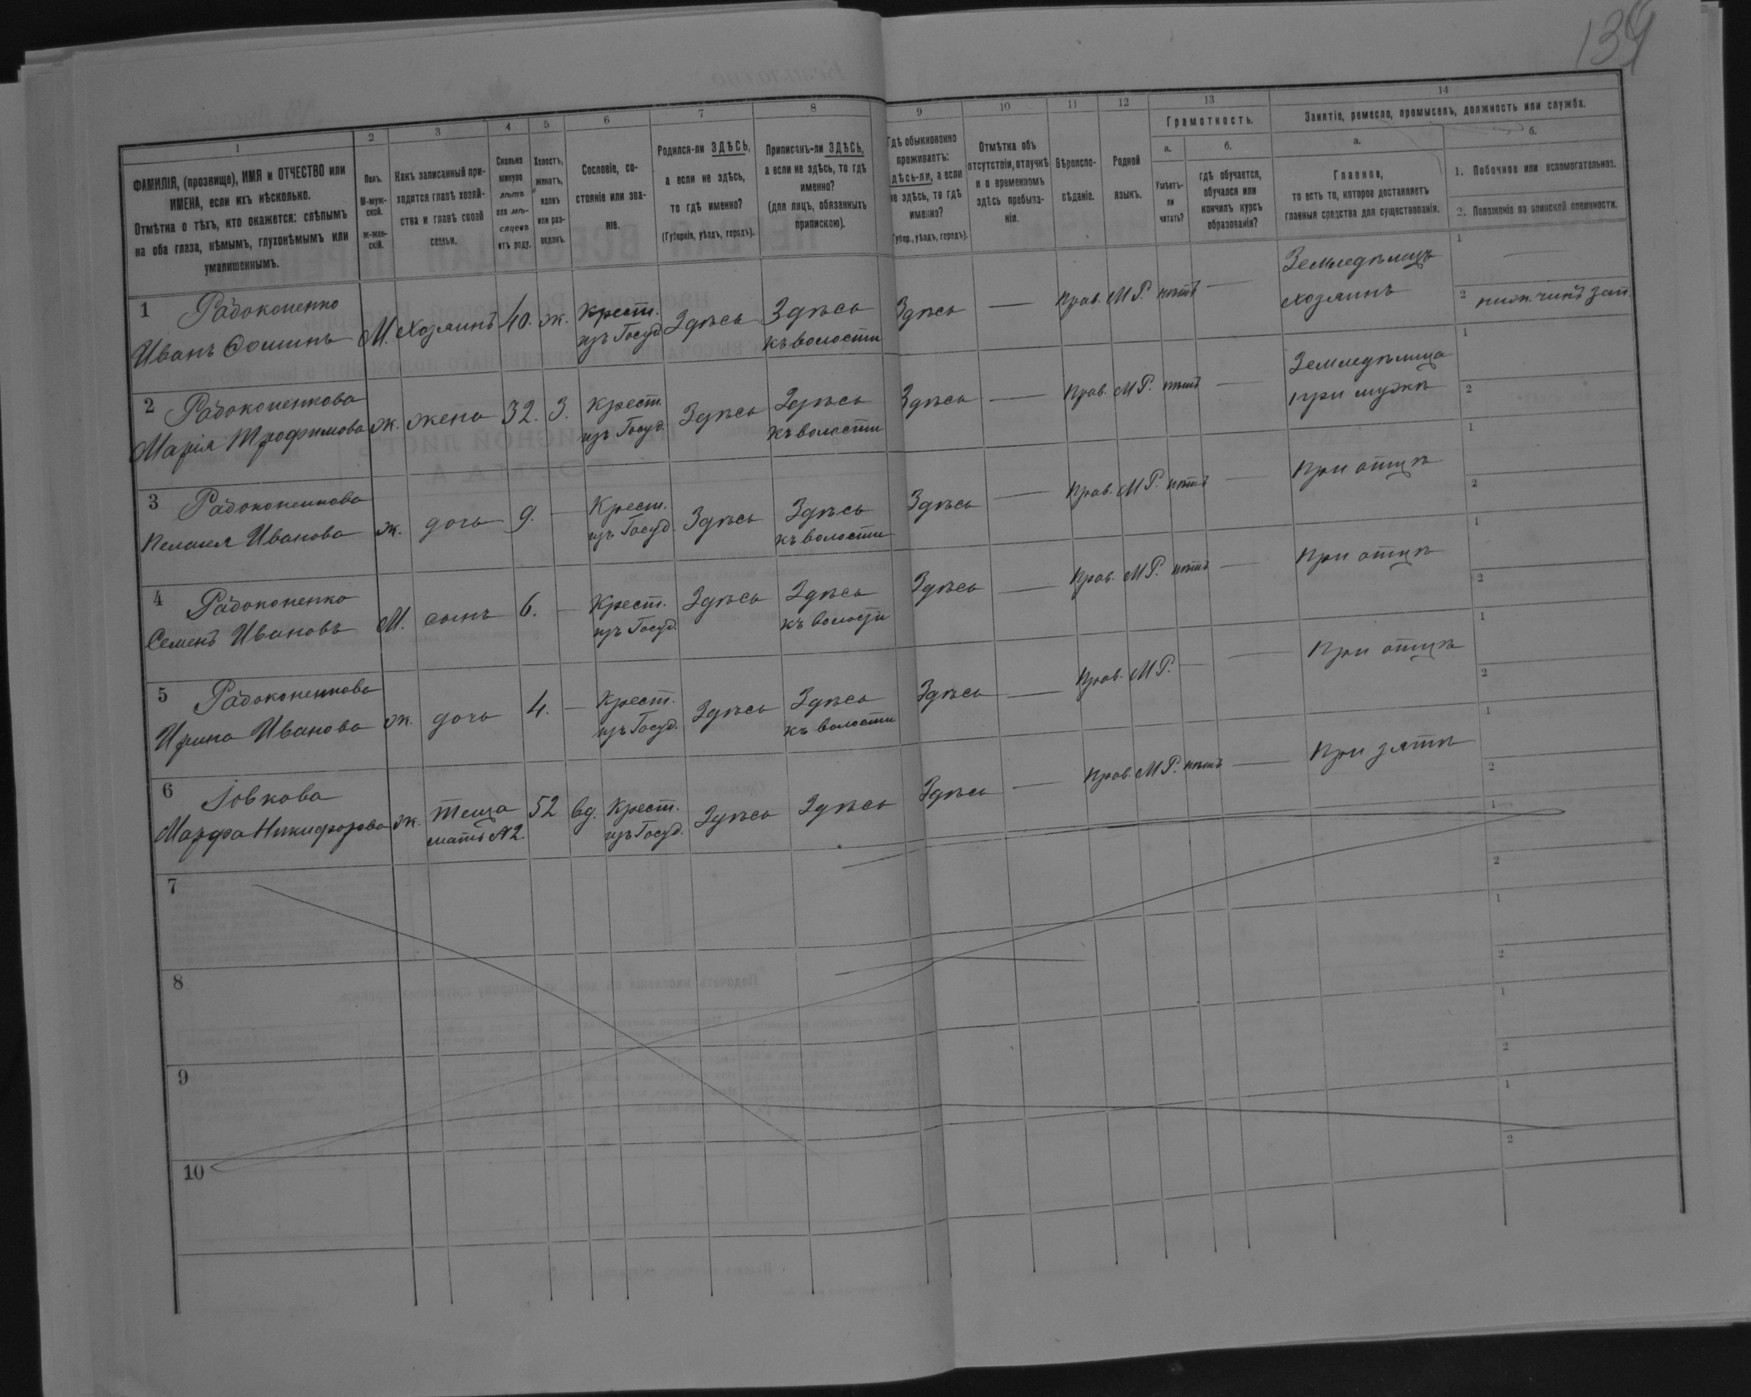 139
1
2
3
4
5
6
7
8
9
10
11
12
13
14
ФАМИЛІЯ, (прозвище), ИМЯ и ОТЧЕСТВО или
ИМЕНА, если ихъ нѣсколько.
Отмѣтка о тѣхъ, кто окажется: слѣпымъ
на оба глаза, нѣмымъ, глухонѣмымъ или
умалишеннымъ.
Полъ.
М-муж-
ской.
Ж-жен-
скій.
Какъ записанный при-
ходится главѣ хозяй-
ства и главѣ своей
семьи.
Сколько
минуло
лѣтъ
или мѣ-
сяцевъ
отъ роду.
Холостъ,
женатъ,
вдовъ
или раз-
веденъ.
Сословіе, со-
стояніе или зва-
ніе.
Родился-ли ЗДѢСЬ,
а если не здѣсь,
то гдѣ именно?
(Губернія, уѣздъ, городъ).
Приписанъ-ли ЗДѢСЬ,
а если не здѣсь, то гдѣ
именно?
(для лицъ, обязанныхъ
припискою).
Гдѣ обыкновенно
проживаетъ:
здѣсь-ли, а если
не здѣсь, то гдѣ
именно?
(Губер., уѣздъ, городъ).
Отмѣтка объ
отсутствіи, отлучкѣ
и о временномъ
здѣсь пребыва-
ніи.
Вѣроиспо-
вѣданіе.
Родной
языкъ.
Грамотность.
а.
Умѣетъ-
ли
читать?
б.
гдѣ обучается,
обучался или
кончилъ курсъ
образованія?
Занятіе, ремесло, промыселъ, должность или служба.
а.
Главное,
то есть то, которое доставляетъ
главныя средства для существованія.
б.
1. Побочное или вспомогательное.
2. Положеніе по воинской повинности.
1 Радоконенко
Иванъ Фоминъ М. хозяинъ 40. ж. Крест. изъ Госуд. Здѣсь Здѣсь къ волости Здѣсь — Прав. М.Р. нѣтъ — Земледѣлецъ хозяинъ 1 — 2 нижн. чинъ зап.
2 Радоконенкова
Марія Трофимова ж. жена 32. З. Крест. изъ Госуд. Здѣсь Здѣсь къ волости Здѣсь — Прав. М.Р. нѣтъ — Земледѣлица при мужѣ 1 2
3 Радоконенкова
Пелагея Иванова ж. дочь 9. — Крест. изъ Госуд. Здѣсь Здѣсь къ волости Здѣсь — Прав. М.Р. нѣтъ — При отцѣ 1 2
4 Радоконенко
Семенъ Ивановъ М. сынъ 6. — Крест. изъ Госуд. Здѣсь Здѣсь къ волости Здѣсь — Прав. М.Р. нѣтъ — При отцѣ 1 2
5 Радоконенкова
Ирина Иванова ж. дочь 4. — Крест. изъ Госуд. Здѣсь Здѣсь къ волости Здѣсь — Прав. М.Р. — — При отцѣ 1 2
6 Іовкова
Марфа Никифорова ж. теща мать №2. 52 вд. Крест. изъ Госуд. Здѣсь Здѣсь Здѣсь — Прав. М.Р. нѣтъ — При зятѣ 1 2
7 1 2
8 1 2
9 1 2
10 1 2